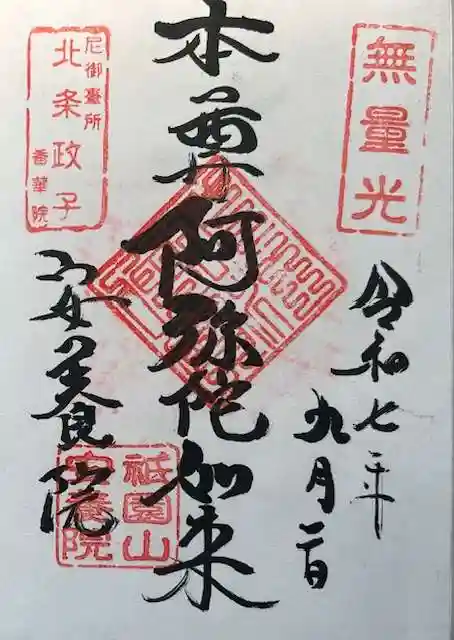 無量光
令和七年
九月二日
本尊阿弥陀如来
尼御臺所
北条政子
香華院
安養院
祇園山
安養院